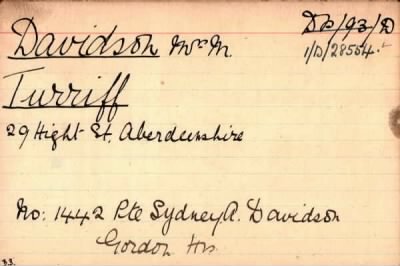 Davidson Mrs M.
Ds/93/D
1/D/28504.
Turriff
29 Hight St, Aberdeenshire
No: 1442 Pte Sydney A. Davidson
Gordon Hrs
33.